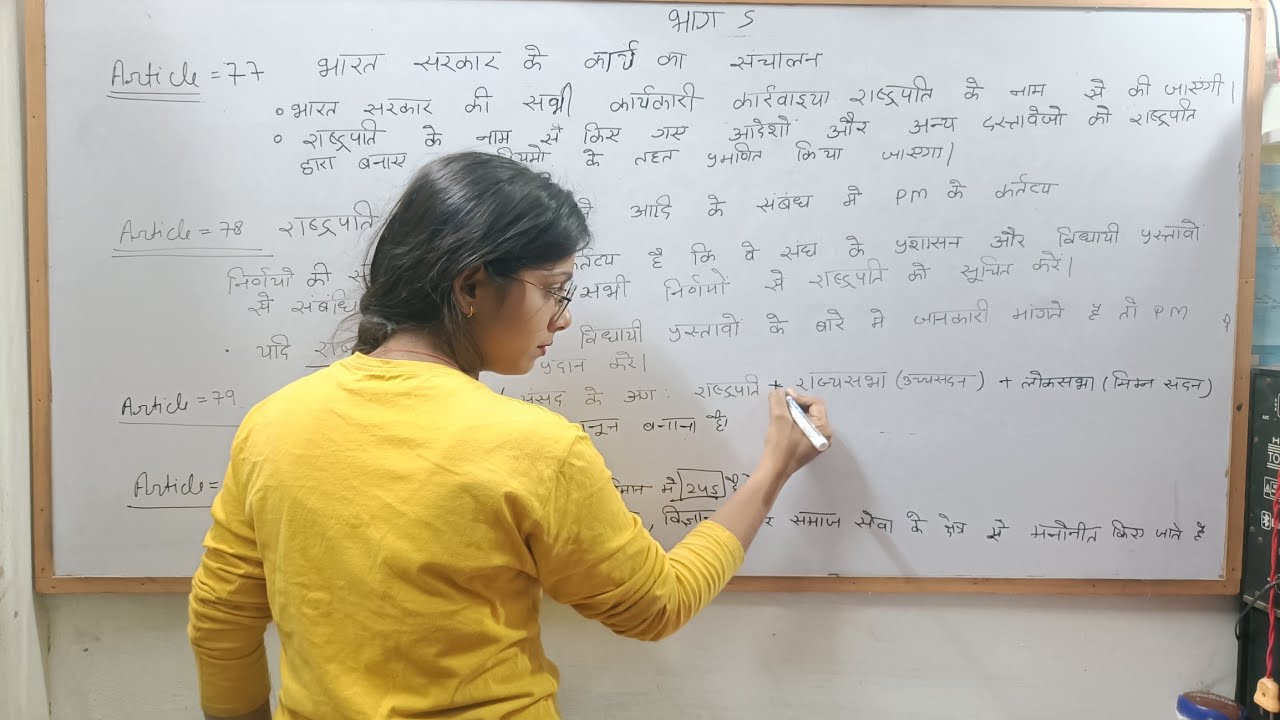 भाग 5
Article = 77 भारत सरकार के कार्य का संचालन
• भारत सरकार की सभी कार्यकारी कार्रवाइया राष्ट्रपति के नाम से की जाएंगी।
• राष्ट्रपति के नाम से किए गए आदेशों और अन्य दस्तावेजो को राष्ट्रपति
द्वारा बनाए नियमो के तहत प्रमणित किया जाएगा।
Article = 78 राष्ट्रपति आदि के संबंध मे PM के कर्तव्य
कर्तव्य है कि वे संघ के प्रशासन और विधायी प्रस्तावो
से संबंधि सभी निर्णयो से राष्ट्रपति को सूचित करें।
निर्णयो की
• यदि विधायी प्रस्तावों के बारे मे जानकारी मांगते है तो PM
प्रदान करे।
Article = 79 संसद के अंग : राष्ट्रपति + राज्यसभा (उच्चसदन) + लोकसभा (निम्न सदन)
कानून बनाना है।
Article = मे 245 है
विज्ञान समाज सेवा के क्षेत्र से मनोनीत किए जाते है